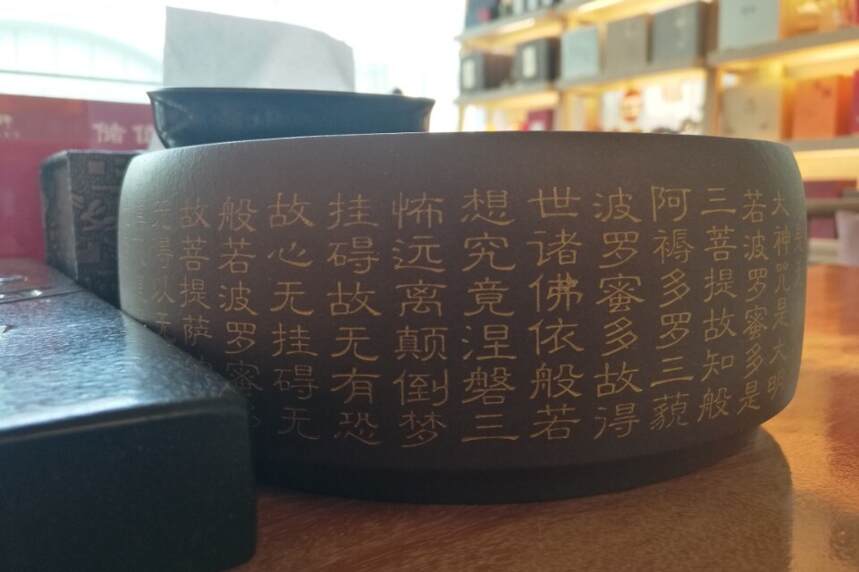 无得以无
故菩提萨
般若波罗蜜多
故心无挂碍无
挂碍故无有恐
怖远离颠倒梦
想究竟涅槃三
世诸佛依般若
波罗蜜多故得
阿褥多罗三藐
三菩提故知般
若波罗蜜多是
大神咒是大明